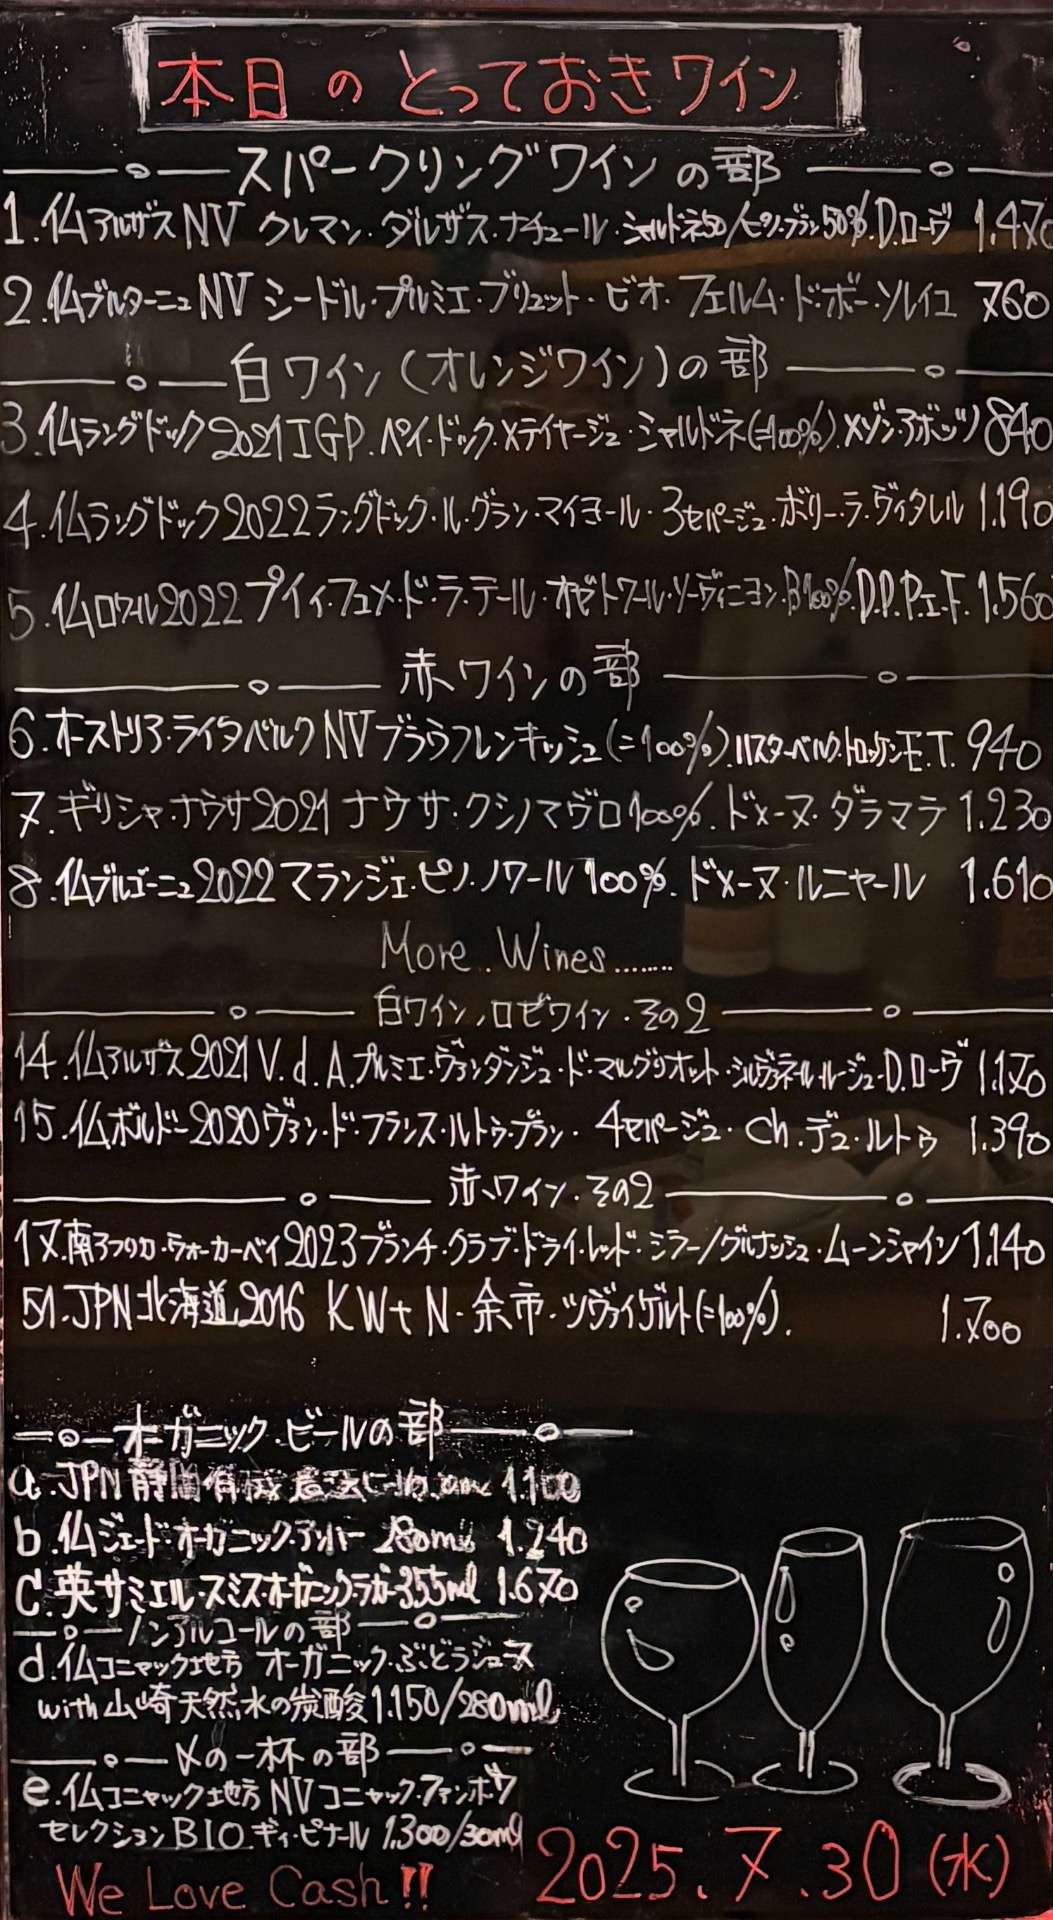 本日のとっておきワイン
スパークリングワインの部
1.仏アルザスNV クレマン・ダルザス・ナチュール・シャルドネ50/ピノ・ブラン50%.D.ローヴ 1.470
2.仏ブルターニュNV シードル・プルミエ・ブリュット・ビオ・フェルム・ド・ボー・ソレイユ 760
白ワイン(オレンジワイン)の部
3.仏ラングドック2021IGP.ペイ・ドック・メテイヤージュ・シャルドネ(=100%).メゾン・アボッツ 840
4.仏ラングドック2022ラングドック・ル・グラン・マイヨール・3セパージュ・ボリー・ラ・ヴィタレル 1.190
5.仏ロワール2022プイィ・フュメ・ド・ラ・テール・オゼトワール・ソーヴィニヨン・B100%.D.P.P.エ.F. 1.560
赤ワインの部
6.オーストリア・ライタベルクNVブラウフレンキッシュ(=100%).ハスターベルク.トロッケンE.T. 940
7.ギリシャ・ナウサ2021ナウサ・クシノマヴロ100%.ドメーヌ・ダラマラ 1.230
8.仏ブルゴーニュ2022マランジェ・ピノ・ノワール100%.ドメーヌ・ルニャール 1.610
More..Wines........
白ワイン,ロゼワイン.その2
14.仏アルザス2021V.d.A.プルミエ・ヴァンダンジュ・ド・マルグリオット・シルヴァネール・ルージュ・D.ローヴ 1.170
15.仏ボルドー2020ヴァン・ド・フランス・ルトゥ・ブラン・4セパージュ・Ch.デュ・ルトゥ 1.390
赤ワイン.その2
17.南アフリカ・ウォーカーベイ2023ブランチ・クラブ・ドライ・レッド・シラー/グルナッシュ・ムーンシャイン 1.140
51.JPN北海道2016 KWt N・余市・ツヴァイゲルト(=100%). 1.700
オーガニック.ビールの部
a.JPN静岡有機 1.100
b.仏ジェード・オーガニック・アンバー 280ml 1.240
c.英サミエル・スミスオーガニックラガー355ml 1.670
ノンアルコールの部
d.仏コニャック地方 オーガニック・ぶどうジュース
with山崎天然水の炭酸1.150/280ml
〆の一杯の部
e.仏コニャック地方NVコニャック・ファンボワ
セレクションBIO.ギィ・ピナール 1.300/30ml
We Love Cash!!
2025.7.30(水)